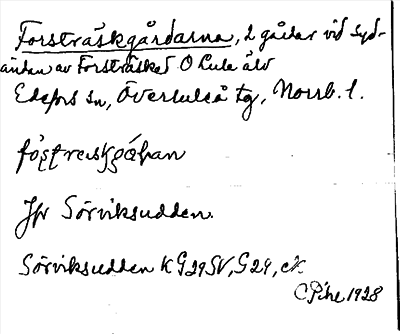 Forsträskgårdarna, 2 gårdar vid Syd-
ändan av Forsträsket O Lule älv
Edefors sn, Överluleå tg, Norrb. l.
Jfr Sörviksudden.
Sörviksudden K G29SV, G29, eK
C Pihl 1928